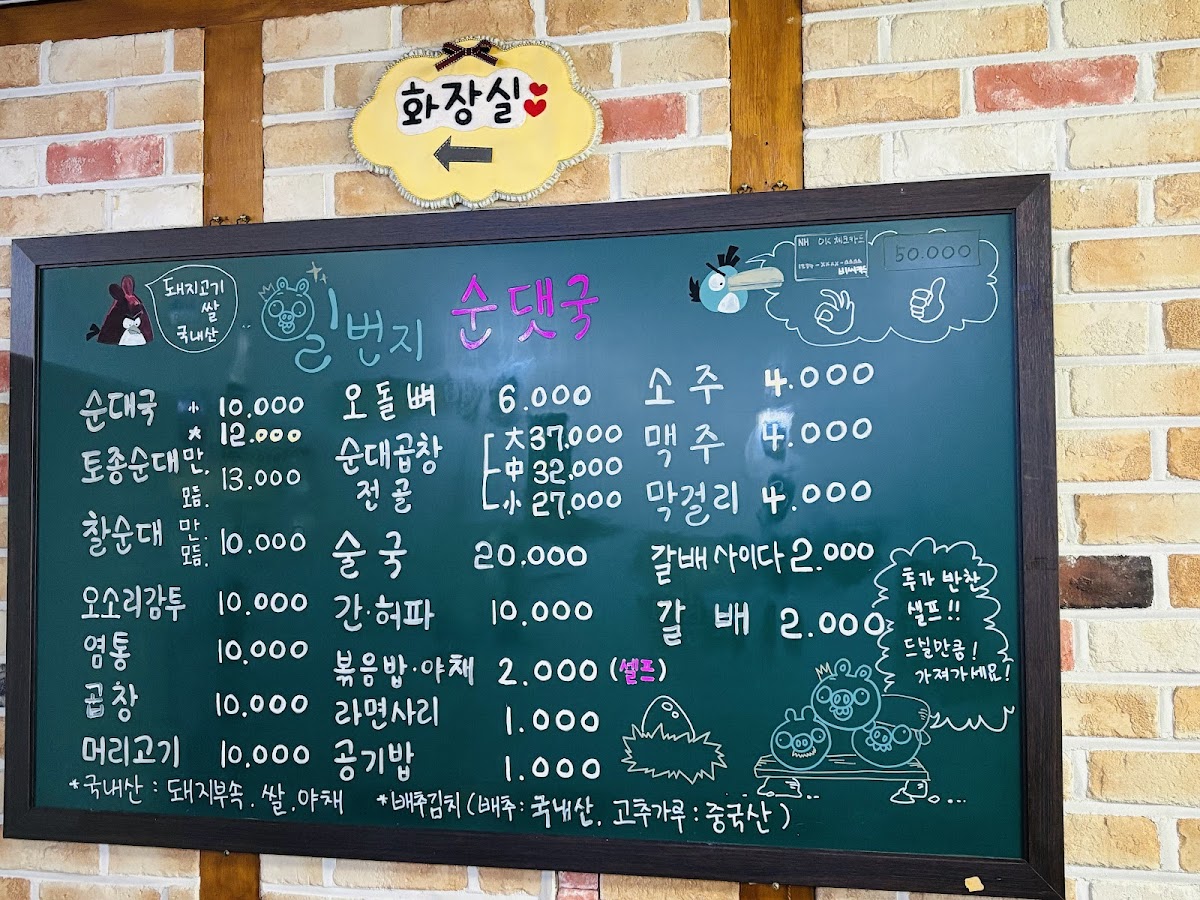 화장실
돼지고기
쌀
국내산
일번지 순댓국
NH OK 체크카드
50.000
순대국 小 10.000
大 12.000
토종순대 만. 모듬. 13.000
찰순대 만. 모듬. 10.000
오소리감투 10.000
염통 10.000
곱창 10.000
머리고기 10.000
오돌뼈 6.000
순대곱창 전골 大 37.000
中 32.000
小 27.000
술국 20.000
간·허파 10.000
볶음밥·야채 2.000 (셀프)
라면사리 1.000
공기밥 1.000
소주 4.000
맥주 4.000
막걸리 4.000
갈배사이다 2.000
갈배 2.000
추가 반찬
셀프!!
드실만큼!
가져가세요!
*국내산 : 돼지부속. 쌀. 야채 *배추김치 (배추: 국내산. 고추가루 : 중국산)